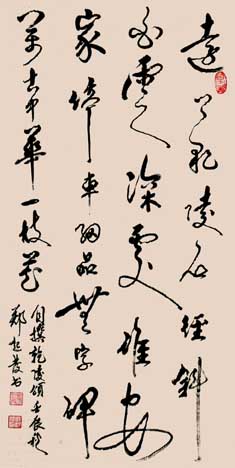 遠上乾陵石徑斜
白雲深處誰安
家停車細品無字碑
萬古中華一枝花
自撰乾陵頌壬辰秋
鄭書